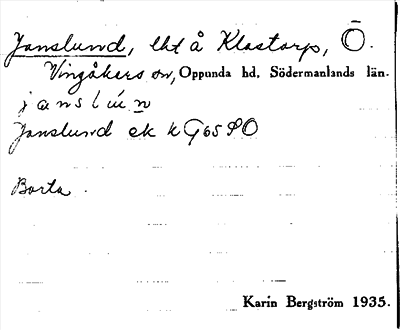 Janslund, lht å Klastorp, Ö.
Vingåkers sn, Oppunda hd, Södermanlands län.
j a n s l ú n
Janslund ek k G65 SO
Borta.
Karin Bergström 1935.